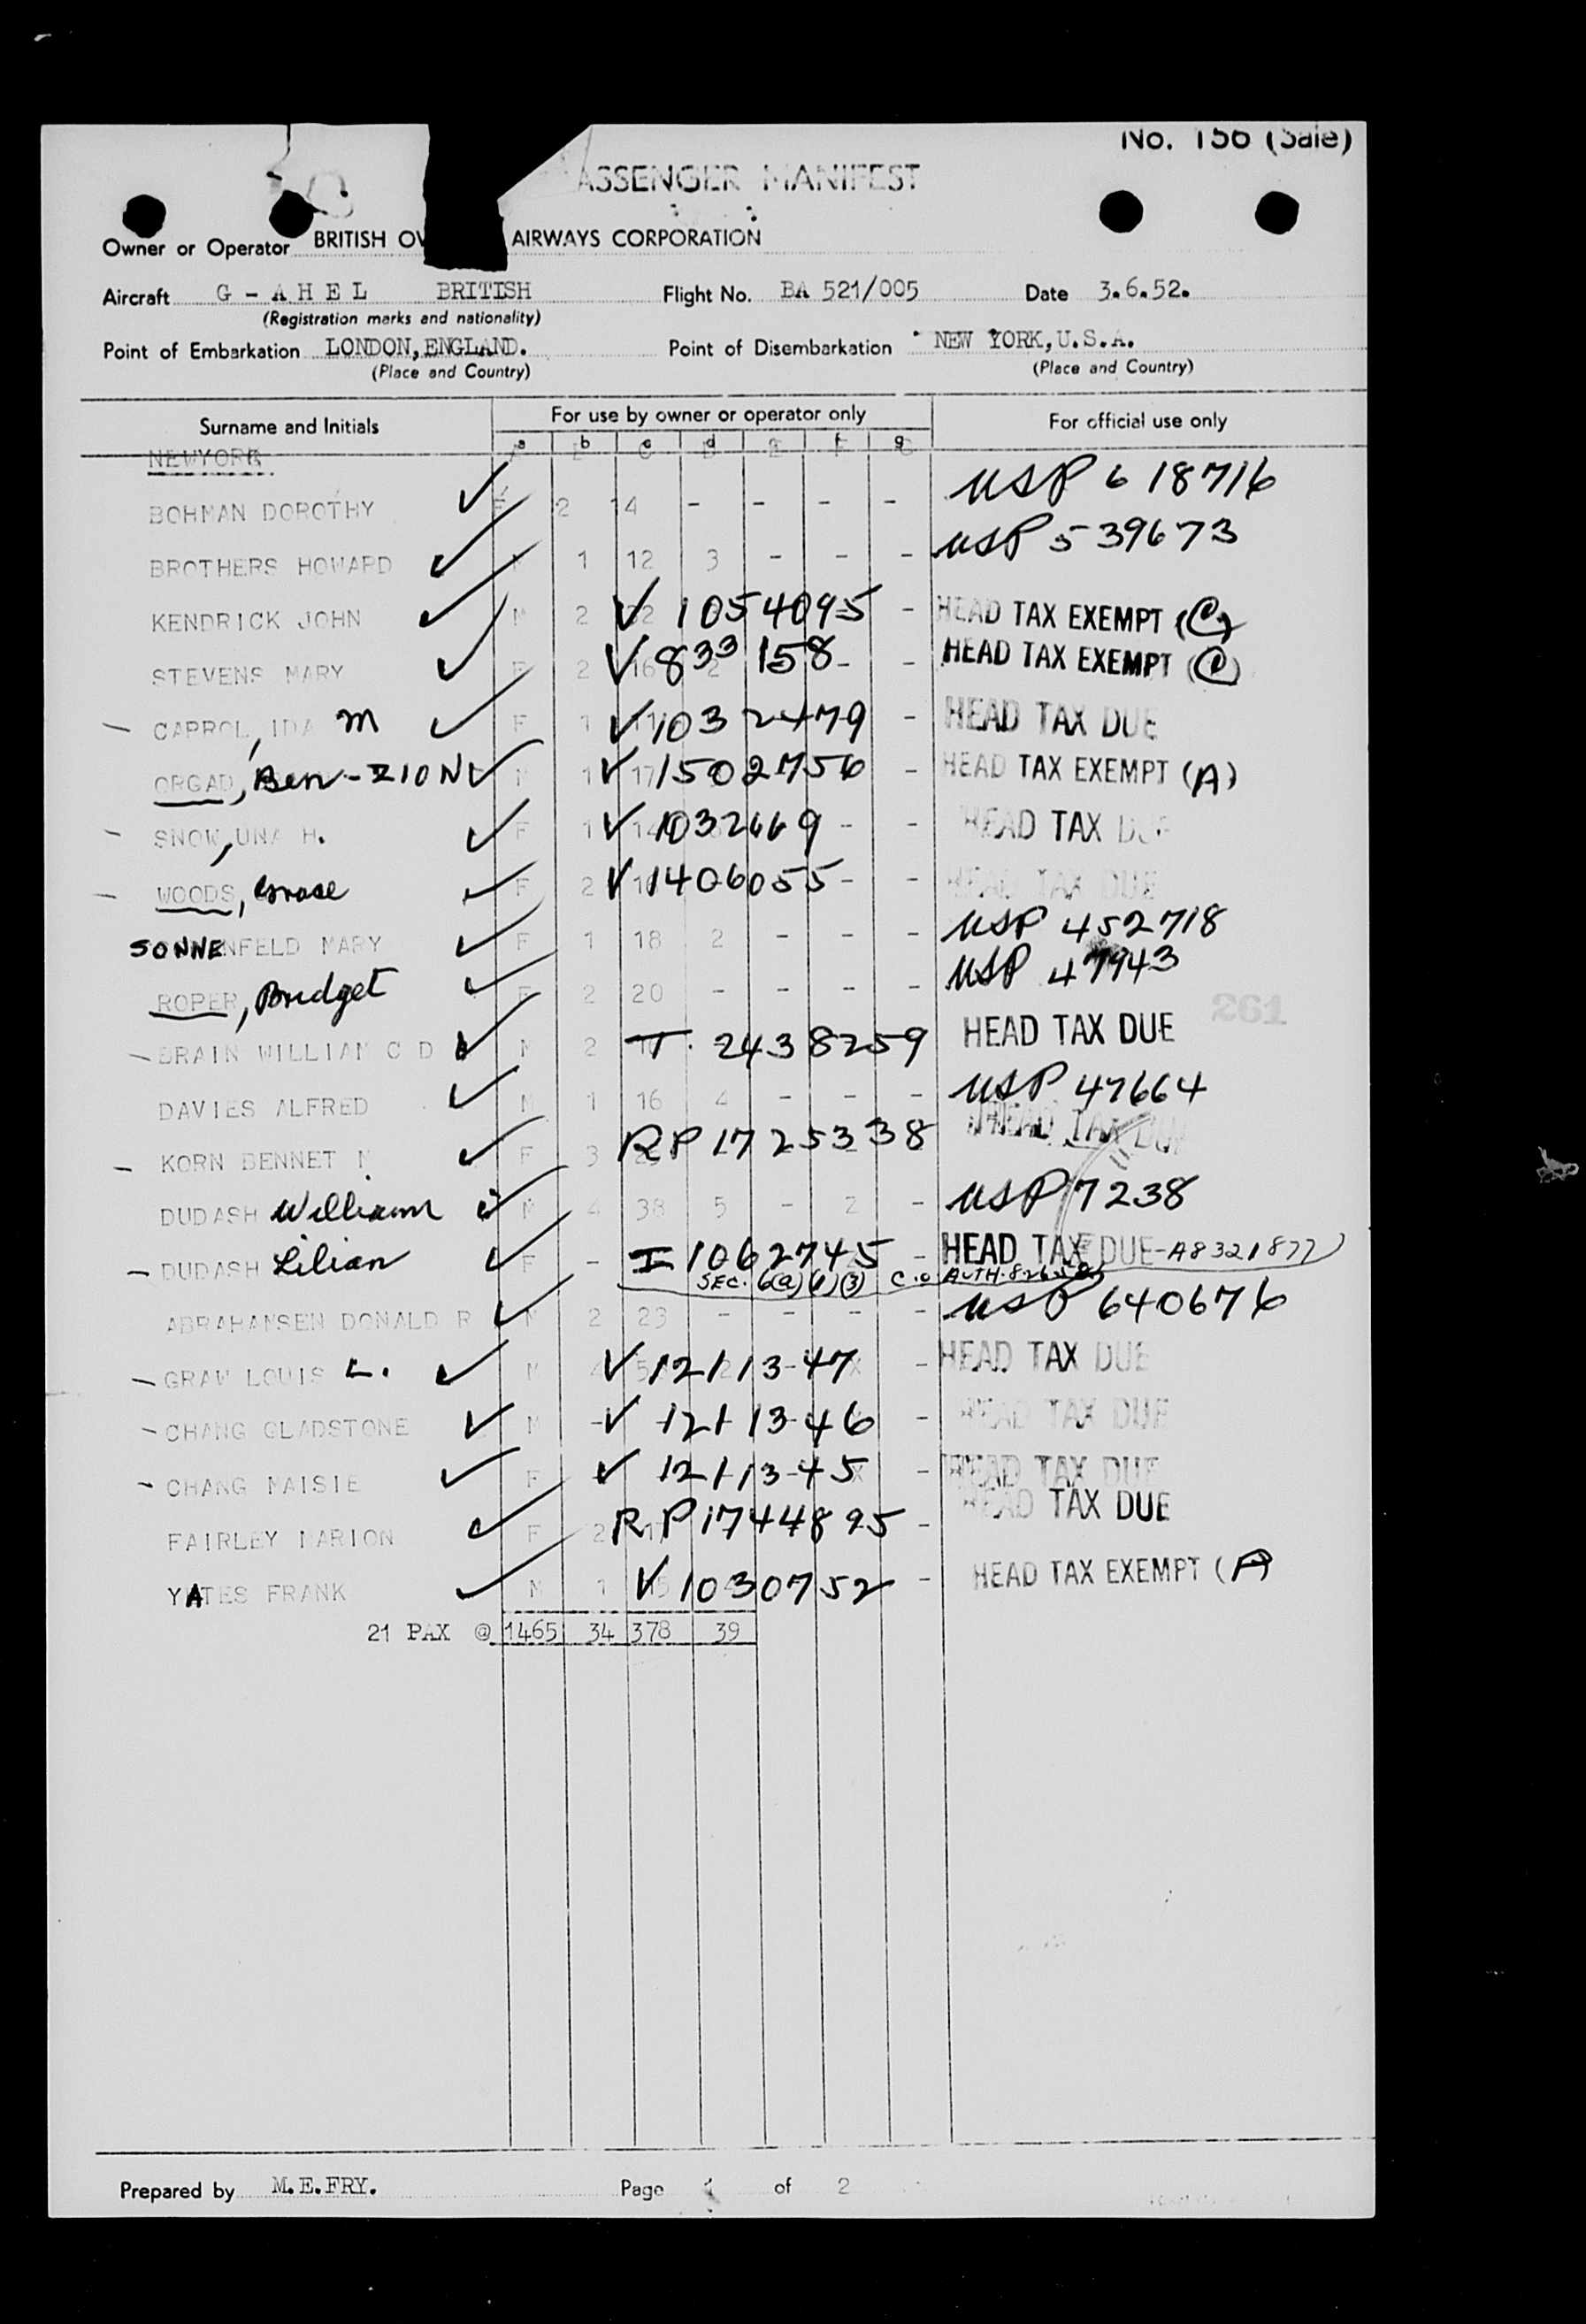 No. 156 (Sale)
ASSENGER MANIFEST
Owner or Operator BRITISH OV AIRWAYS CORPORATION
Aircraft G - A H E L BRITISH Flight No. BA 521/005 Date 3.6.52.
(Registration marks and nationality)
Point of Embarkation LONDON, ENGLAND. Point of Disembarkation NEW YORK, U.S.A.
(Place and Country) (Place and Country)
Surname and Initials For use by owner or operator only For official use only
a b c d e f g
NEWYORK.
BOHMAN DOROTHY ✓ F 2 14 - - - - USP 618716
BROTHERS HOWARD ✓ M 1 12 3 - - - USP 539673
KENDRICK JOHN ✓ M 2 V 1054095 - HEAD TAX EXEMPT (C)
STEVENS MARY ✓ F 2 V 833158 - - HEAD TAX EXEMPT (C)
— CARROL, IDA M ✓ F 1 V 1032479 - HEAD TAX DUE
ORGAD, Ben-ZION ✓ M 1 V 1502756 - HEAD TAX EXEMPT (A)
— SNOW, UNA H. ✓ F 1 V 1032669 - - HEAD TAX DUE
— WOODS, Grace ✓ F 2 V 1406055 - - HEAD TAX DUE
SONNENFELD MARY ✓ F 1 18 2 - - - USP 452718
ROPER, Bridget ✓ F 2 20 - - - - USP 47943
261
— BRAIN WILLIAM C D ✓ M 2 T. 2438259 HEAD TAX DUE
DAVIES ALFRED ✓ M 1 16 4 - - - USP 47664
— KORN BENNET M ✓ F 3 RP 1725338 HEAD TAX DUE
DUDASH William ✓ M 4 38 5 - 2 - USP 7238
— DUDASH Lilian ✓ F - I 1062745 - HEAD TAX DUE - A8321877
SEC. 6(a)(1)(3) C.O AUTH.
ABRAHAMSEN DONALD R ✓ M 2 23 - - - - USP 640676
— GRAW LOUIS L. ✓ M 4 V 1211347 - HEAD TAX DUE
— CHANG GLADSTONE ✓ M - V 1211346 - HEAD TAX DUE
— CHANG MAISIE ✓ F V 1211345 - HEAD TAX DUE
FAIRLEY MARION ✓ F 2 RP 1744895 - HEAD TAX DUE
YATES FRANK ✓ M 1 V 1030752 - HEAD TAX EXEMPT (A)
21 PAX @ 1465 34 378 39
Prepared by M.E.FRY. Page 1 of 2